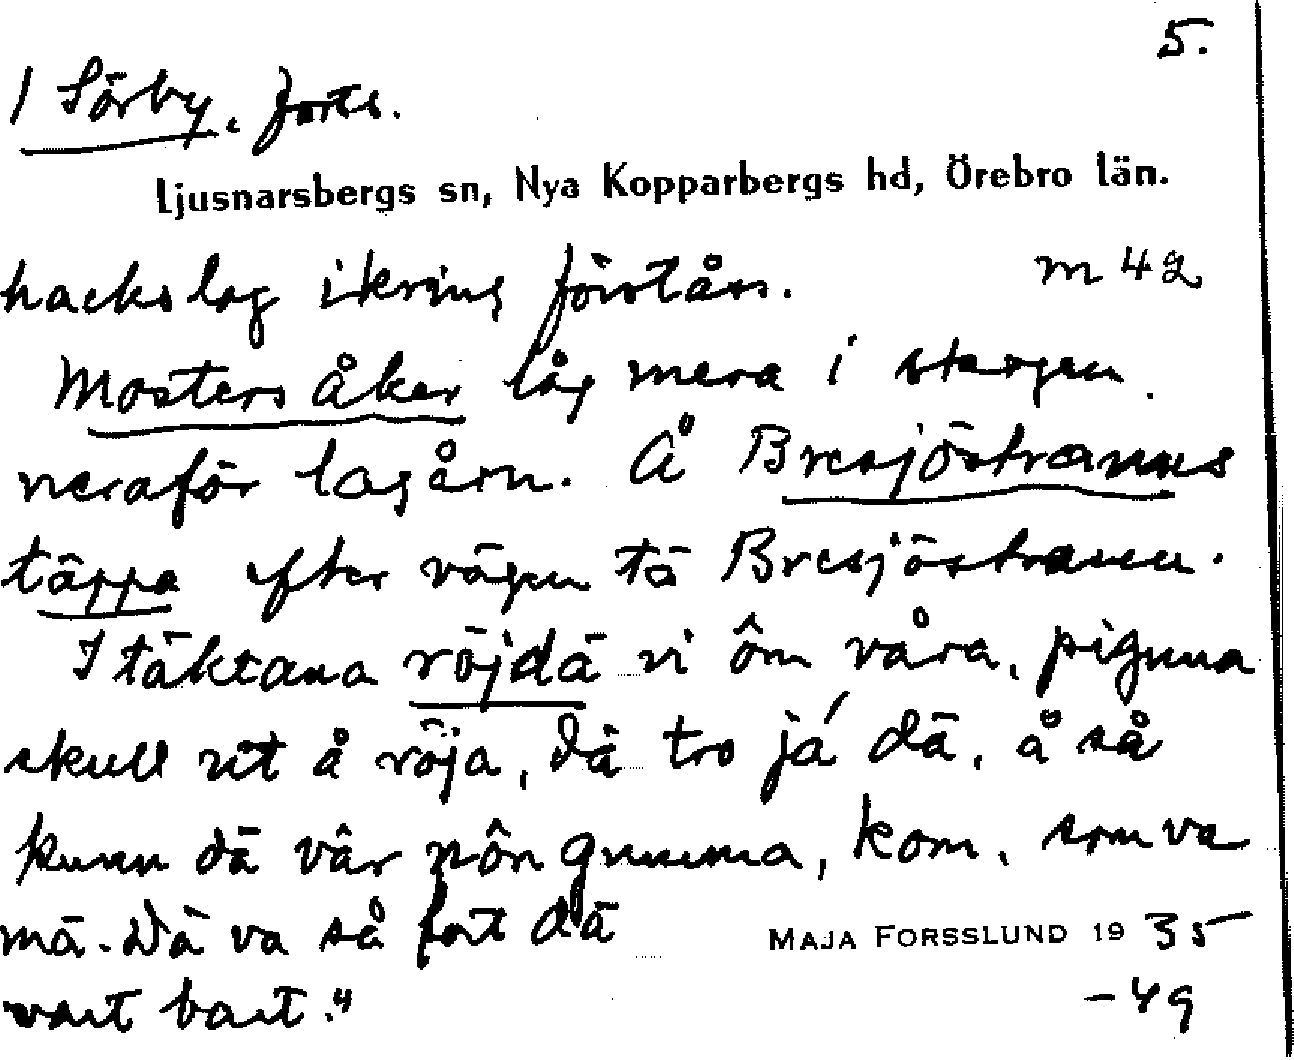 5.
I Sörby, forts.
Ljusnarsbergs sn, Nya Kopparbergs hd, Örebro län.
hackslog ikring förståss. m 42
Mosters åker låg mera i skogen
neraför lagårn. Å Bresjöstranns
täppa efter vägen tä Bresjöstrannen.
I täktana röjdä vi ôm våra, piguna
skull ut å röja, dä tro já dä, å så
kunn dä vâr nôn gumma, kom, som va
mä. Dä va så fort dä MAJA FORSSLUND 1935
vart bart." -49